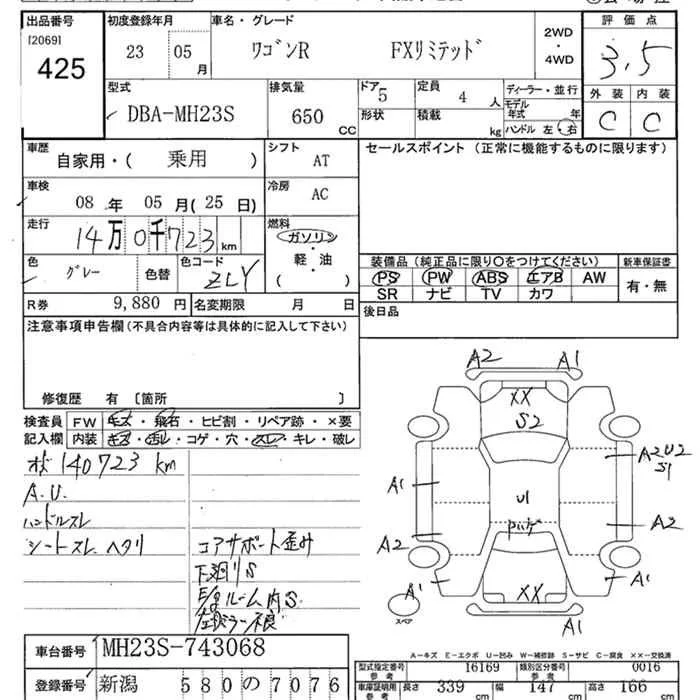 出品番号 初度登録年月 車名・グレード 評価点
[2069]
425 23 05 月 ワゴンR FXリミテッド 2WD・4WD 3.5
型式 排気量 ドア 5 定員 4 人 ディーラー・並行 外装 内装
DBA-MH23S 650 CC 形状 積載 kg モデル年式 年 C C
ハンドル 左・右
車歴 シフト セールスポイント (正常に機能するものに限ります)
自家用・( 乗用 ) AT
車検 冷房
08 年 05 月(25 日) AC
走行 燃料
14万0千723 km ガソリン・軽・油 ( )
色 色替 色コード 装備品 (純正品に限り○をつけてください) 新車保証書
グレー ZLY PS PW ABS エアB AW 有・無
SR ナビ TV カワ
R券 9,880 円 名変期限 月 日 後日品
注意事項申告欄(不具合内容等は具体的に記入して下さい)
修復歴 有 〔箇所 〕
検査員 FW キズ・飛石・ヒビ割・リペア跡・×要
記入欄 内装 キズ・汚レ・コゲ・穴・スレ・キレ・破レ
140723 km
A.U.
ハンドルスレ
シートスレ ヘタリ
コアサポート歪み
下廻りS
ルーム内S
A2 A1
XX
S2
A2U2
S1
A1
U1
A2
A2
A1
XX
A1
A1
スペア
A-キズ E-エクボ U-凹み W-補修跡 S-サビ C-腐食 XX-交換済
車台番号 MH23S-743068
型式指定番号 参考 16169 類別区分番号 参考 0016
登録番号 新潟 580の7076
車庫証明用 参考 長さ 339 cm 幅 147 cm 高さ 166 cm